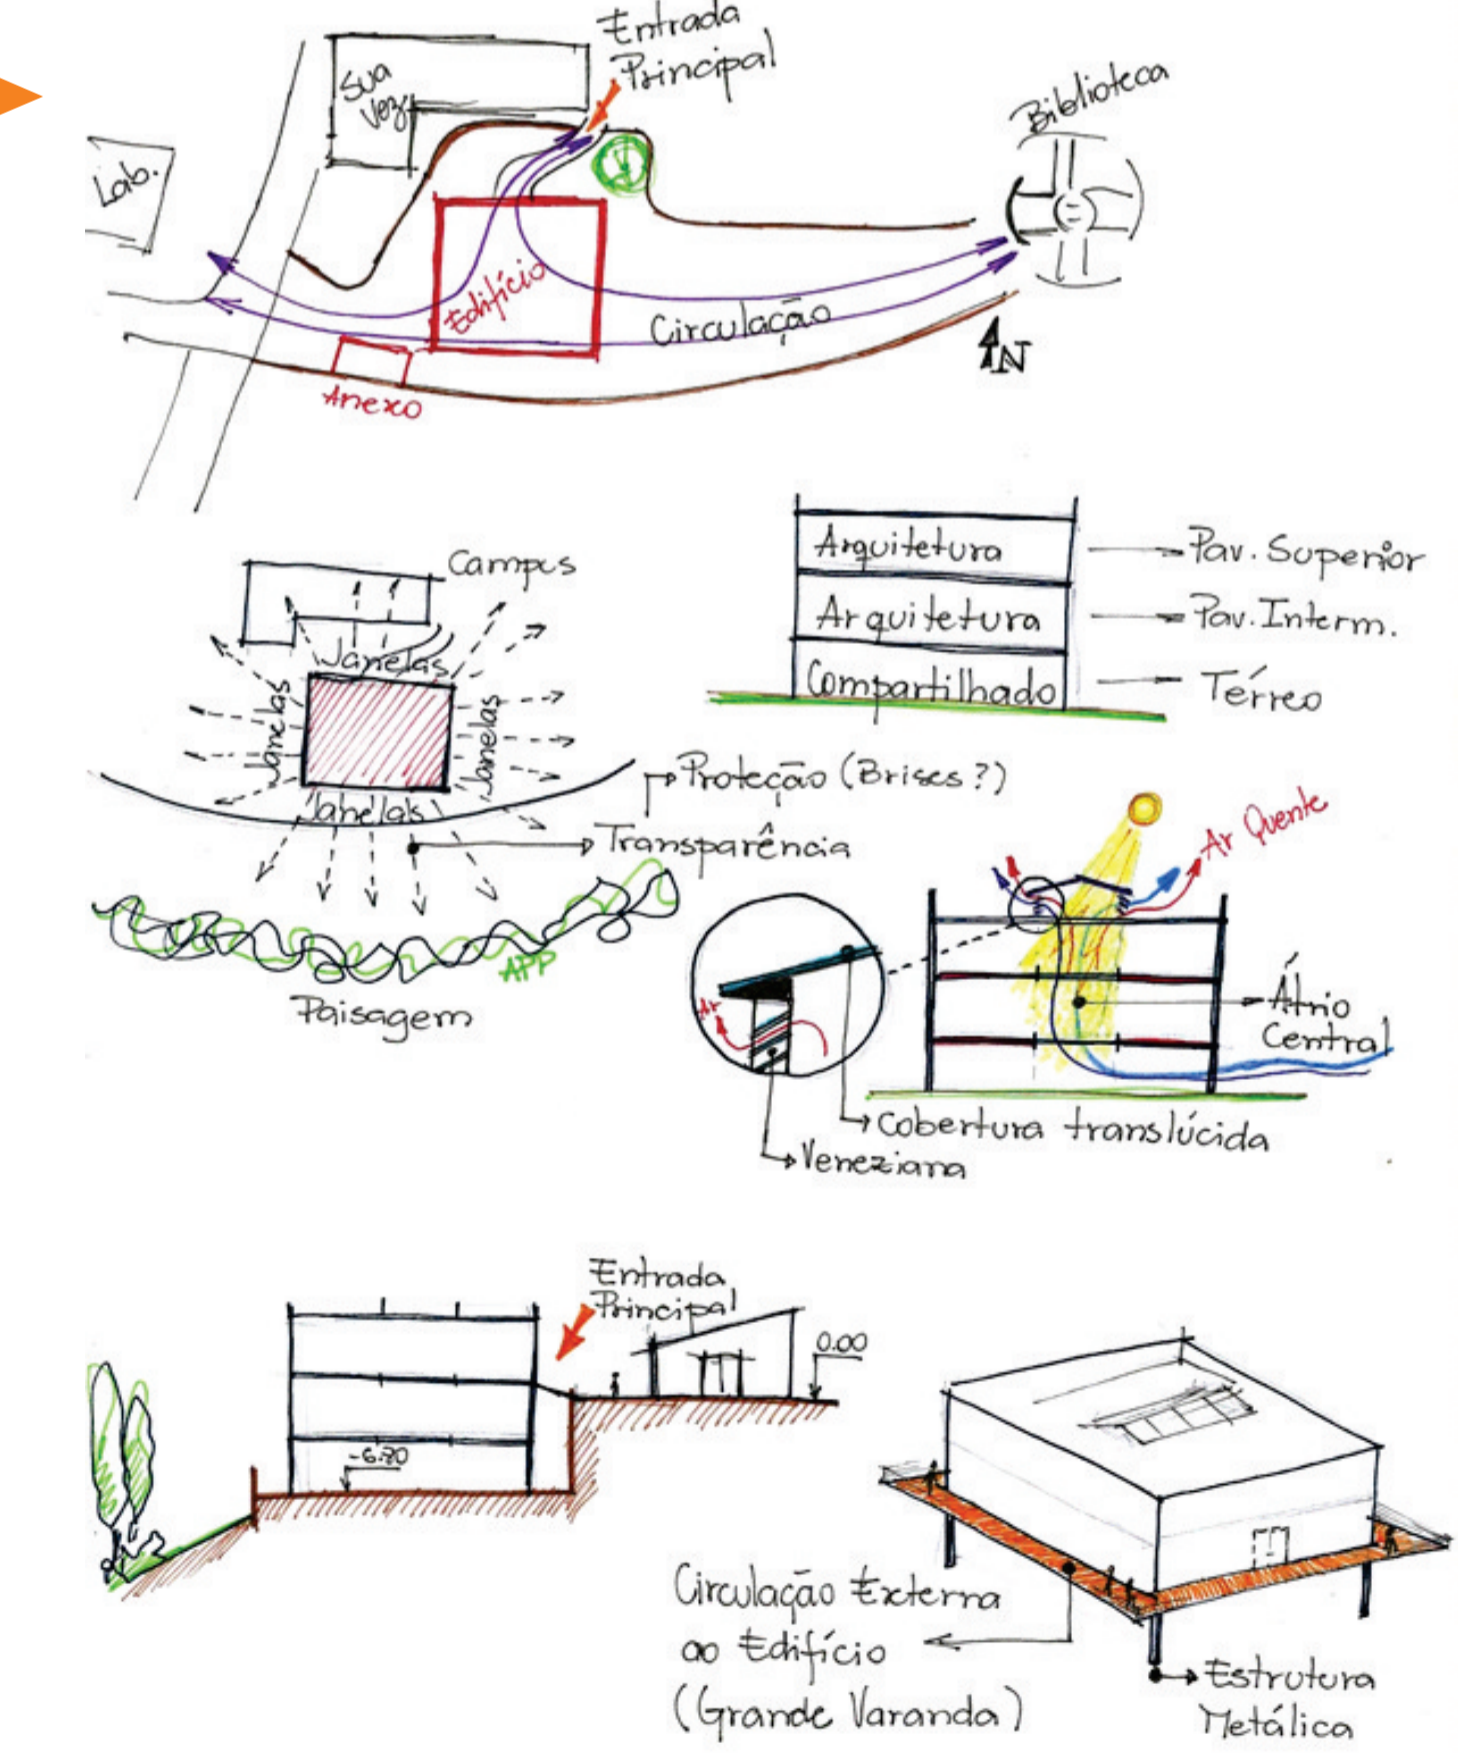 Entrada
Principal
Sua
Vez
Biblioteca
Lab.
Edifício
Circulação
N
Anexo
Campus
Janelas
Janelas
Janelas
Janelas
Arquitetura
Pav. Superior
Arquitetura
Pav. Interm.
Compartilhado
Térreo
Proteção (Brises?)
Transparência
APP
Paisagem
Ar Quente
Ar
Átrio
Central
Cobertura translúcida
Veneziana
Entrada
Principal
0.00
-6.80
Circulação Externa
ao Edifício
(Grande Varanda)
Estrutura
Metálica